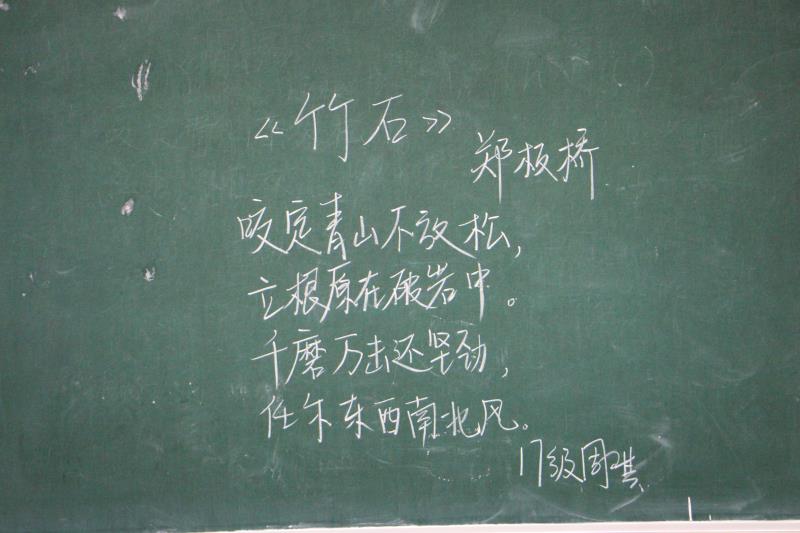 《竹石》
郑板桥
咬定青山不放松，
立根原在破岩中。
千磨万击还坚劲，
任尔东西南北风。
17级周琪